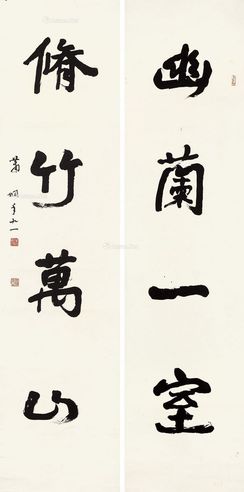 幽蘭一室
脩竹萬山
蕭嫻年九一